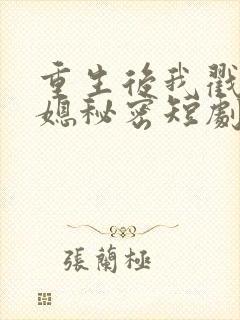 重生後我戳
媳秘密短劇
張蘭極